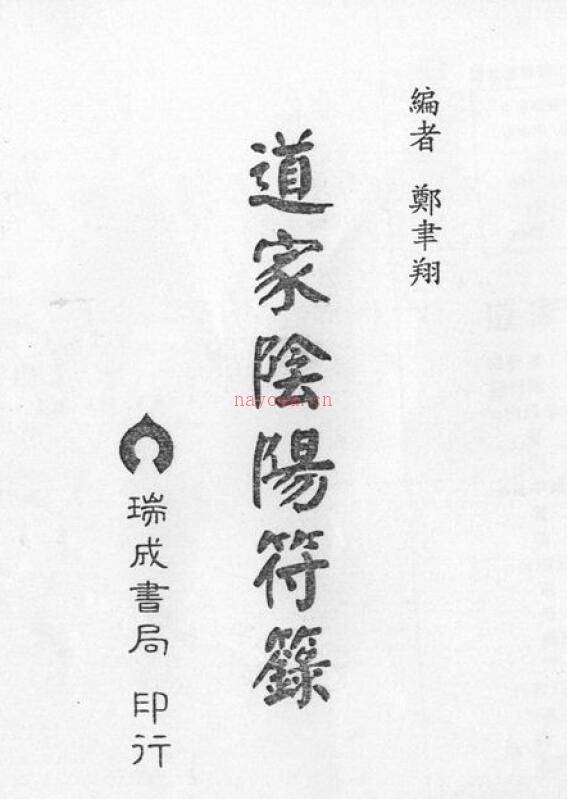 編者 鄭聿翔
道家陰陽符籙
瑞成書局 印行
nayona.cn